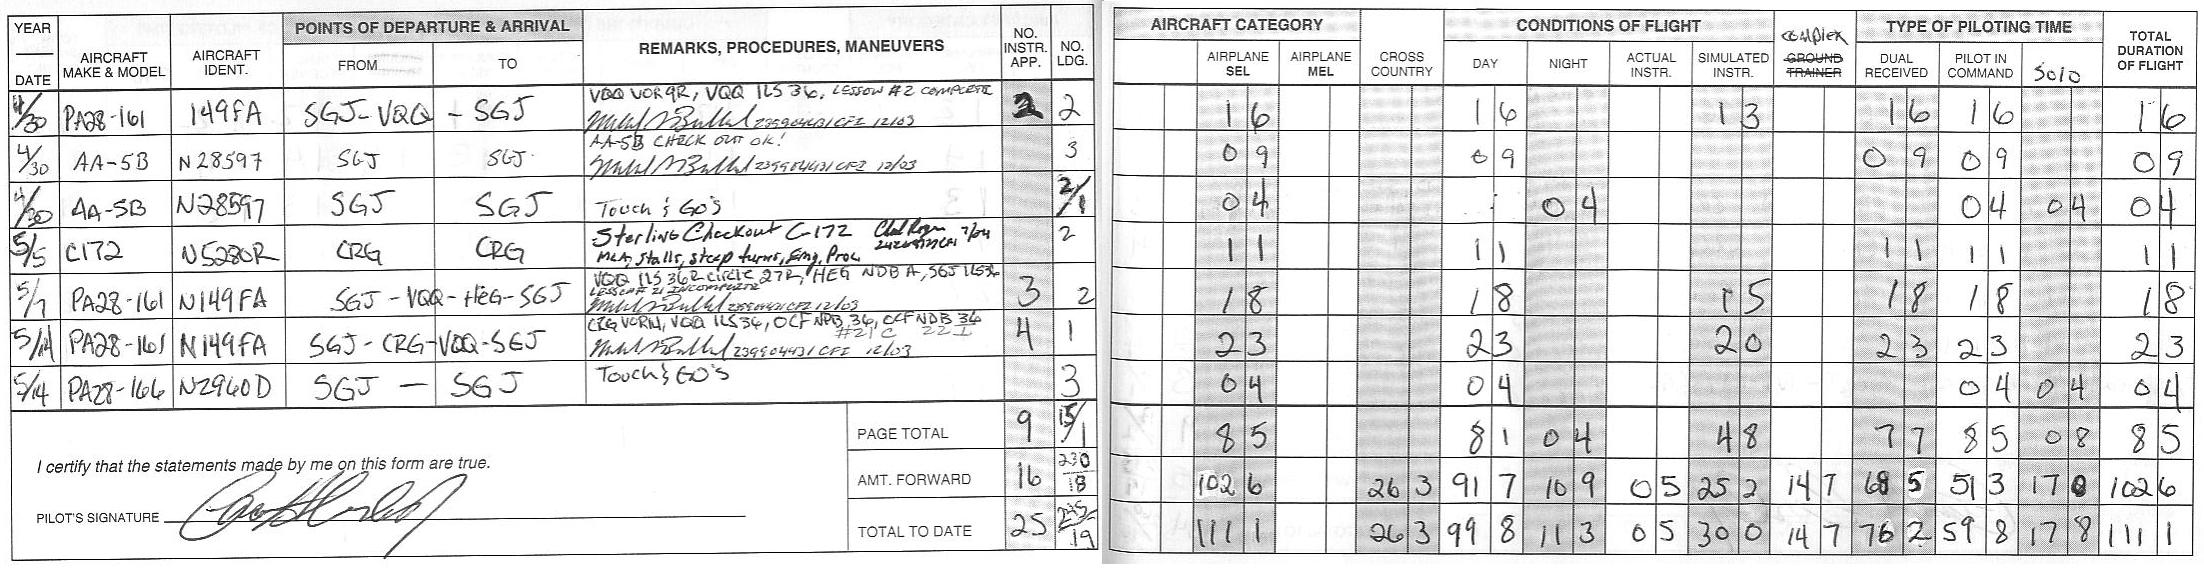 YEAR
DATE
AIRCRAFT MAKE & MODEL
AIRCRAFT IDENT.
POINTS OF DEPARTURE & ARRIVAL
FROM TO
REMARKS, PROCEDURES, MANEUVERS
NO. INSTR. APP.
NO. LDG.
AIRCRAFT CATEGORY
AIRPLANE SEL
AIRPLANE MEL
CROSS COUNTRY
CONDITIONS OF FLIGHT
DAY NIGHT
ACTUAL INSTR.
SIMULATED INSTR.
complex
GROUND TRAINER
TYPE OF PILOTING TIME
DUAL RECEIVED
PILOT IN COMMAND
Solo
TOTAL DURATION OF FLIGHT
VQQ VOR 9R, VQQ ILS 36, LESSON #2 COMPLETE
4/30 PA28-161 149FA SGJ-VQQ - SGJ CFI 12/03 2 2 1 6 1 6 1 3 1 6 1 6 1 6
AA-5B CHECK OUT OK!
4/30 AA-5B N28597 SGJ SGJ CFI 12/03 3 0 9 0 9 0 9 0 9 0 9
4/30 AA-5B N28597 SGJ SGJ Touch & GO'S 2/1 0 4 0 4 0 4 0 4 0 4
Sterling Checkout C-172
5/5 C172 N5280R CRG CRG MCA, Stalls, steep turns, Emg, Proc 2 1 1 1 1 1 1 1 1 1 1
VQQ ILS 36, CIRCLE 27R, HEG NDB A, SGJ ILS
LESSON # 21 INCOMPLETE
5/7 PA28-161 N149FA SGJ-VQQ-HEG-SGJ CFI 12/03 3 2 1 8 1 8 1 5 1 8 1 8 1 8
CRG VOR14, VQQ ILS 36, OCF NDB 36, OCF NDB 36
#21 C 22 I
5/14 PA28-161 N149FA SGJ-CRG-VQQ-SGJ CFI 12/03 4 1 2 3 2 3 2 0 2 3 2 3 2 3
5/14 PA28-166 N2960D SGJ - SGJ Touch & GO'S 3 0 4 0 4 0 4 0 4 0 4
PAGE TOTAL 9 15/1 8 5 8 1 0 4 4 8 7 7 8 5 0 8 8 5
I certify that the statements made by me on this form are true.
AMT. FORWARD 16 230/18 102 6 26 3 91 7 10 9 0 5 25 2 14 7 68 5 51 3 17 0 102 6
PILOT'S SIGNATURE
TOTAL TO DATE 25 245/19 111 1 26 3 99 8 11 3 0 5 30 0 14 7 76 2 59 8 17 8 111 1